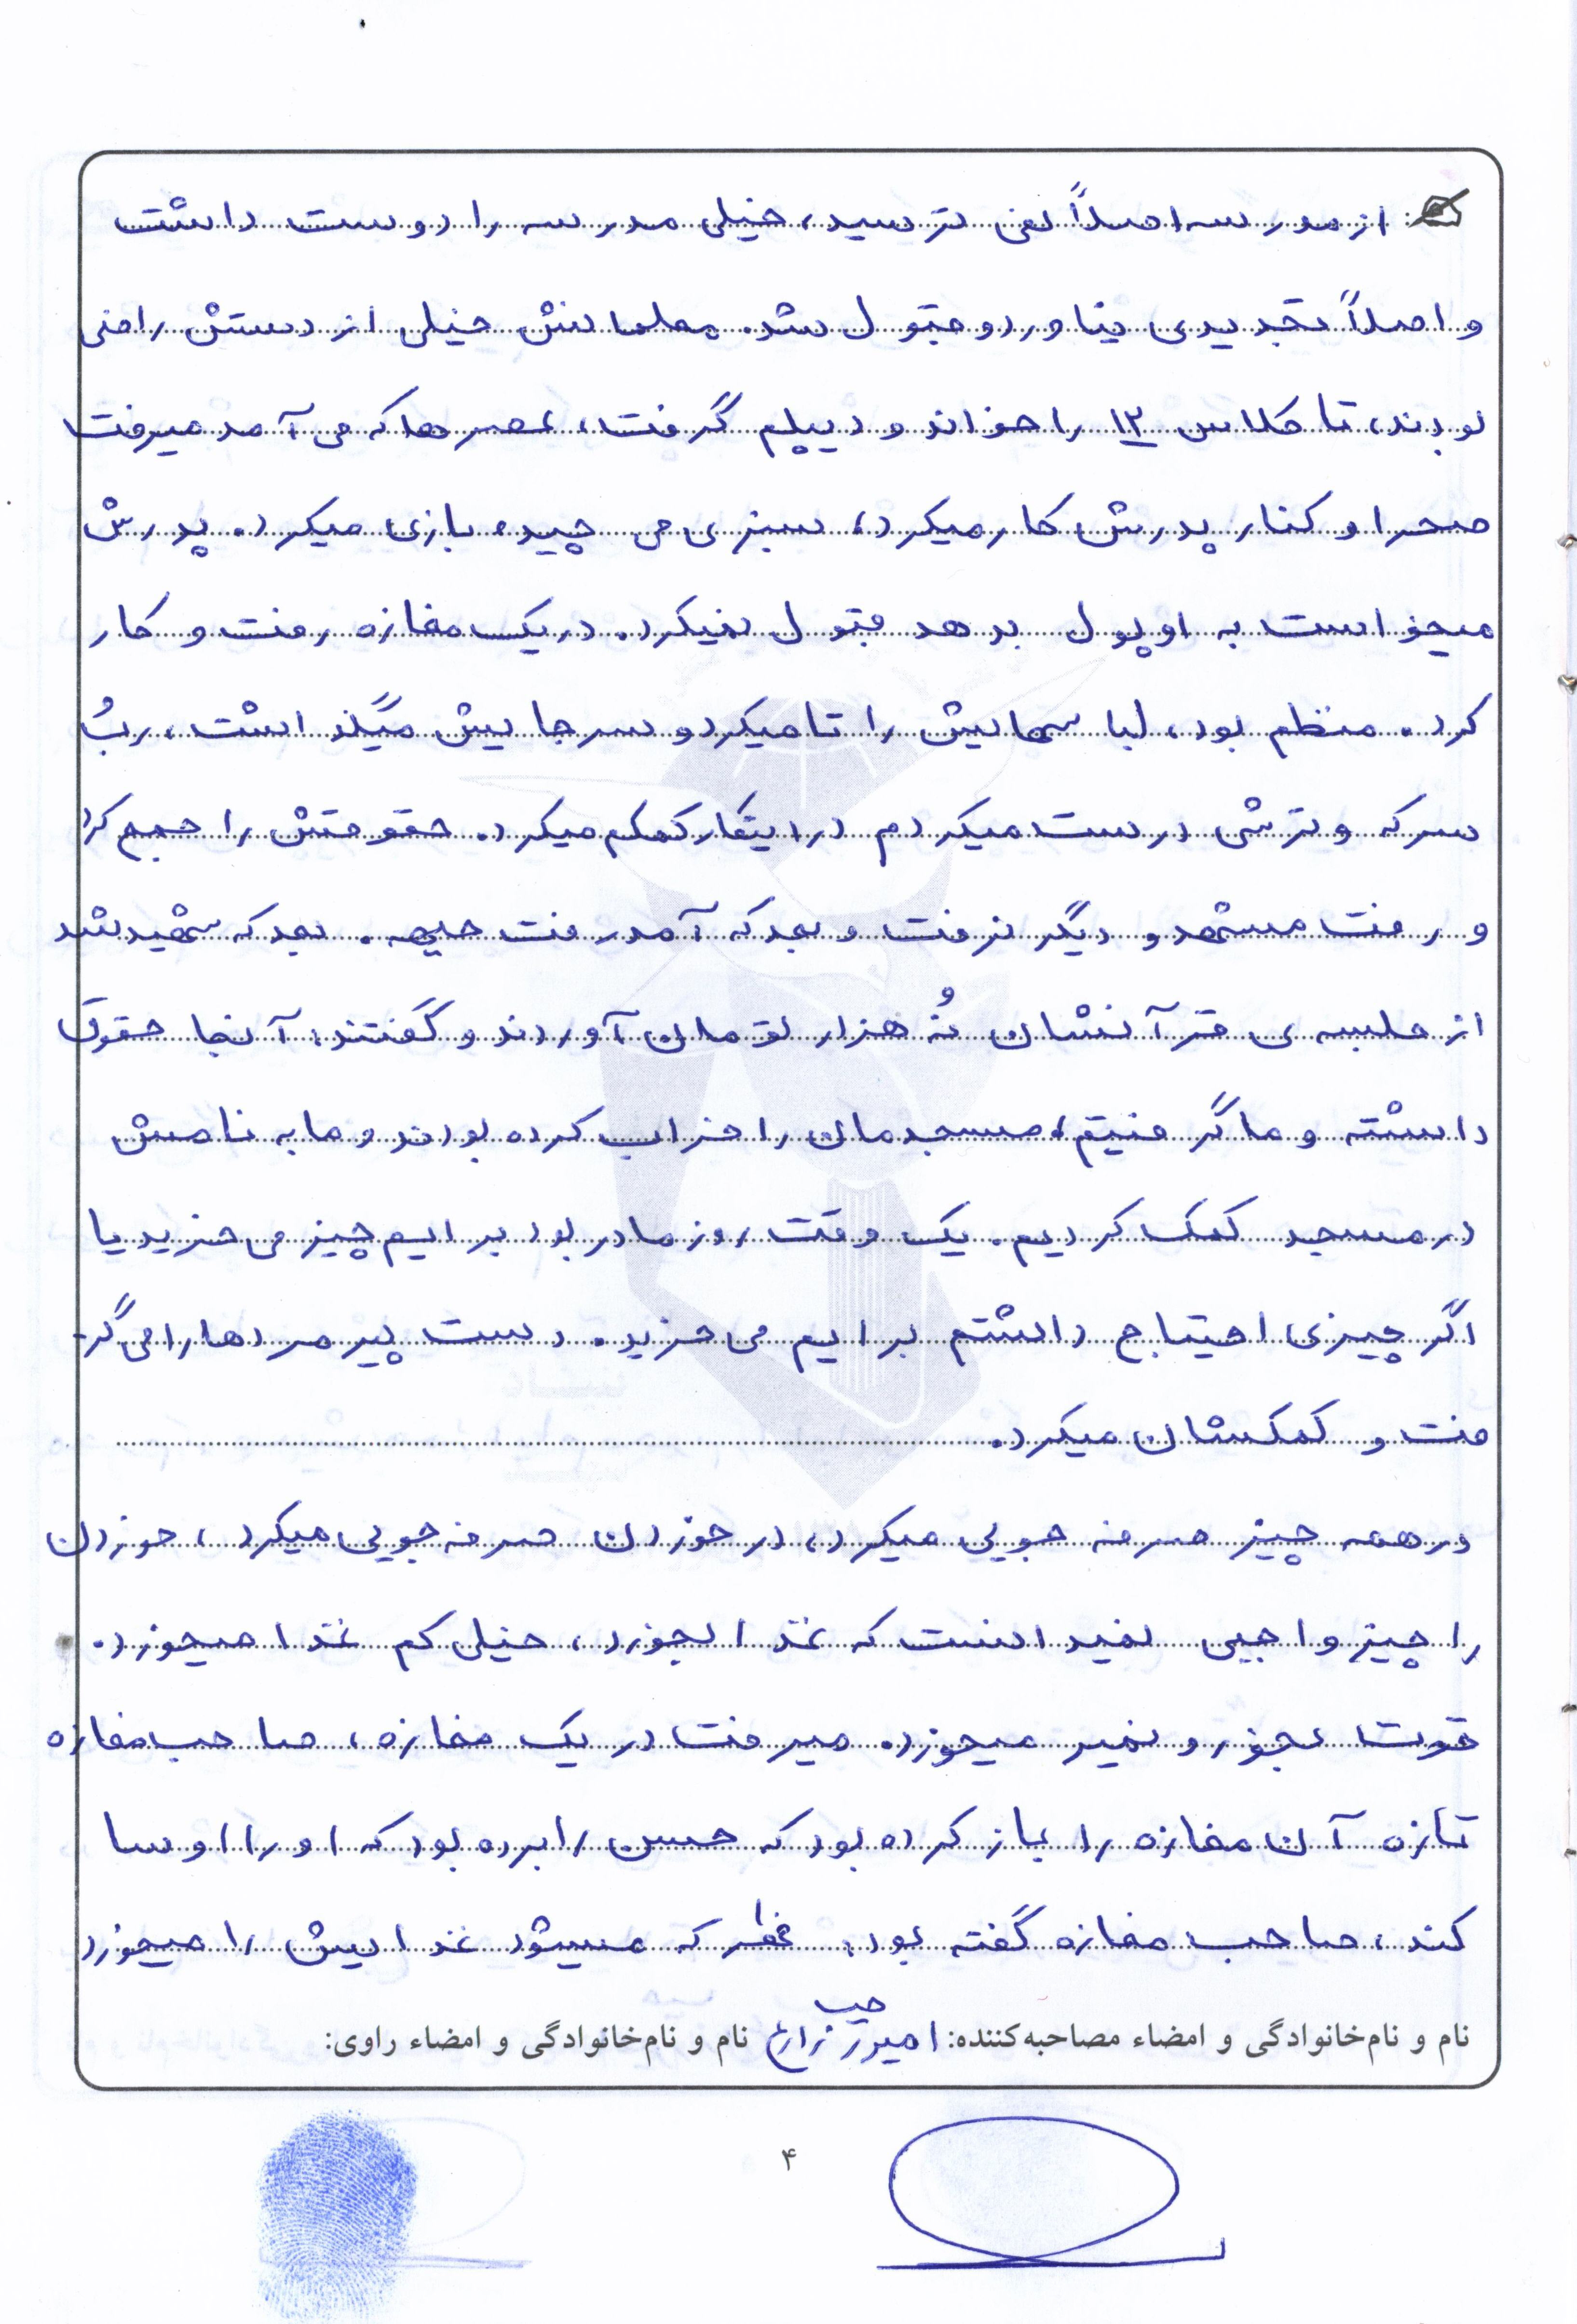 از مدرسه اصلاً نمی ترسید، خیلی مدرسه را دوست داشت
و اصلاً تجدیدی نیاورد و قبول شد. معلمانش خیلی از دستش راضی
بودند، تا کلاس ۱۲ را خواند و دیپلم گرفت، عصرها که می آمد میرفت
صحرا و کنار پدرش کار میکرد، سبزی می چید، بازی میکرد. پدرش
میخواست به او پول بدهد قبول نمیکرد. در یک مغازه رفت و کار
کرد. منظم بود، لباسهایش را تا میکرد و سر جایش میگذاشت، ربُ
سرکه و ترشی درست میکردم در اینکار کمکم میکرد. حقوقش را جمع کرد
و رفت مشهد و دیگر نرفت و بعد که آمد رفت جبهه. بعد که شهید شد
از جلسه ی قرآنشان نُه هزار تومان آوردند و گفتند: آنجا حقوق
داشته و ما گرفتیم، مسجدمان را خراب کرده بودند و ما به نامش
در مسجد کمک کردیم. یک وقت روز مادر بود برایم چیز می خرید یا
اگر چیزی احتیاج داشتم برایم می خرید. دست پیرمردها را می گر-
فت و کمکشان میکرد.
در همه چیز صرفه جویی میکرد، در خوردن صرفه جویی میکرد، خوردن
را چیز واجبی نمیدانست که غذا بخورد، خیلی کم غذا میخورد.
قوت بخور و نمیر میخورد. میرفت در یک مغازه، صاحب مغازه
تازه آن مغازه را باز کرده بود که حسن را برده بود که او را اوسا
کند، صاحب مغازه گفته بود: که میشود غذایش را میخورد
نام و نام‌خانوادگی و امضاء مصاحبه‌کننده: زارع نام و نام‌خانوادگی و امضاء راوی:
۴